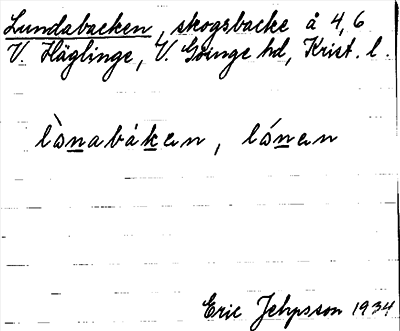 Lundabacken, skogsbacke å 4,6
V. Häglinge, V. Göinge hd, Krist. l.
lònabákan, lónan
Eric Jehpsson 1934